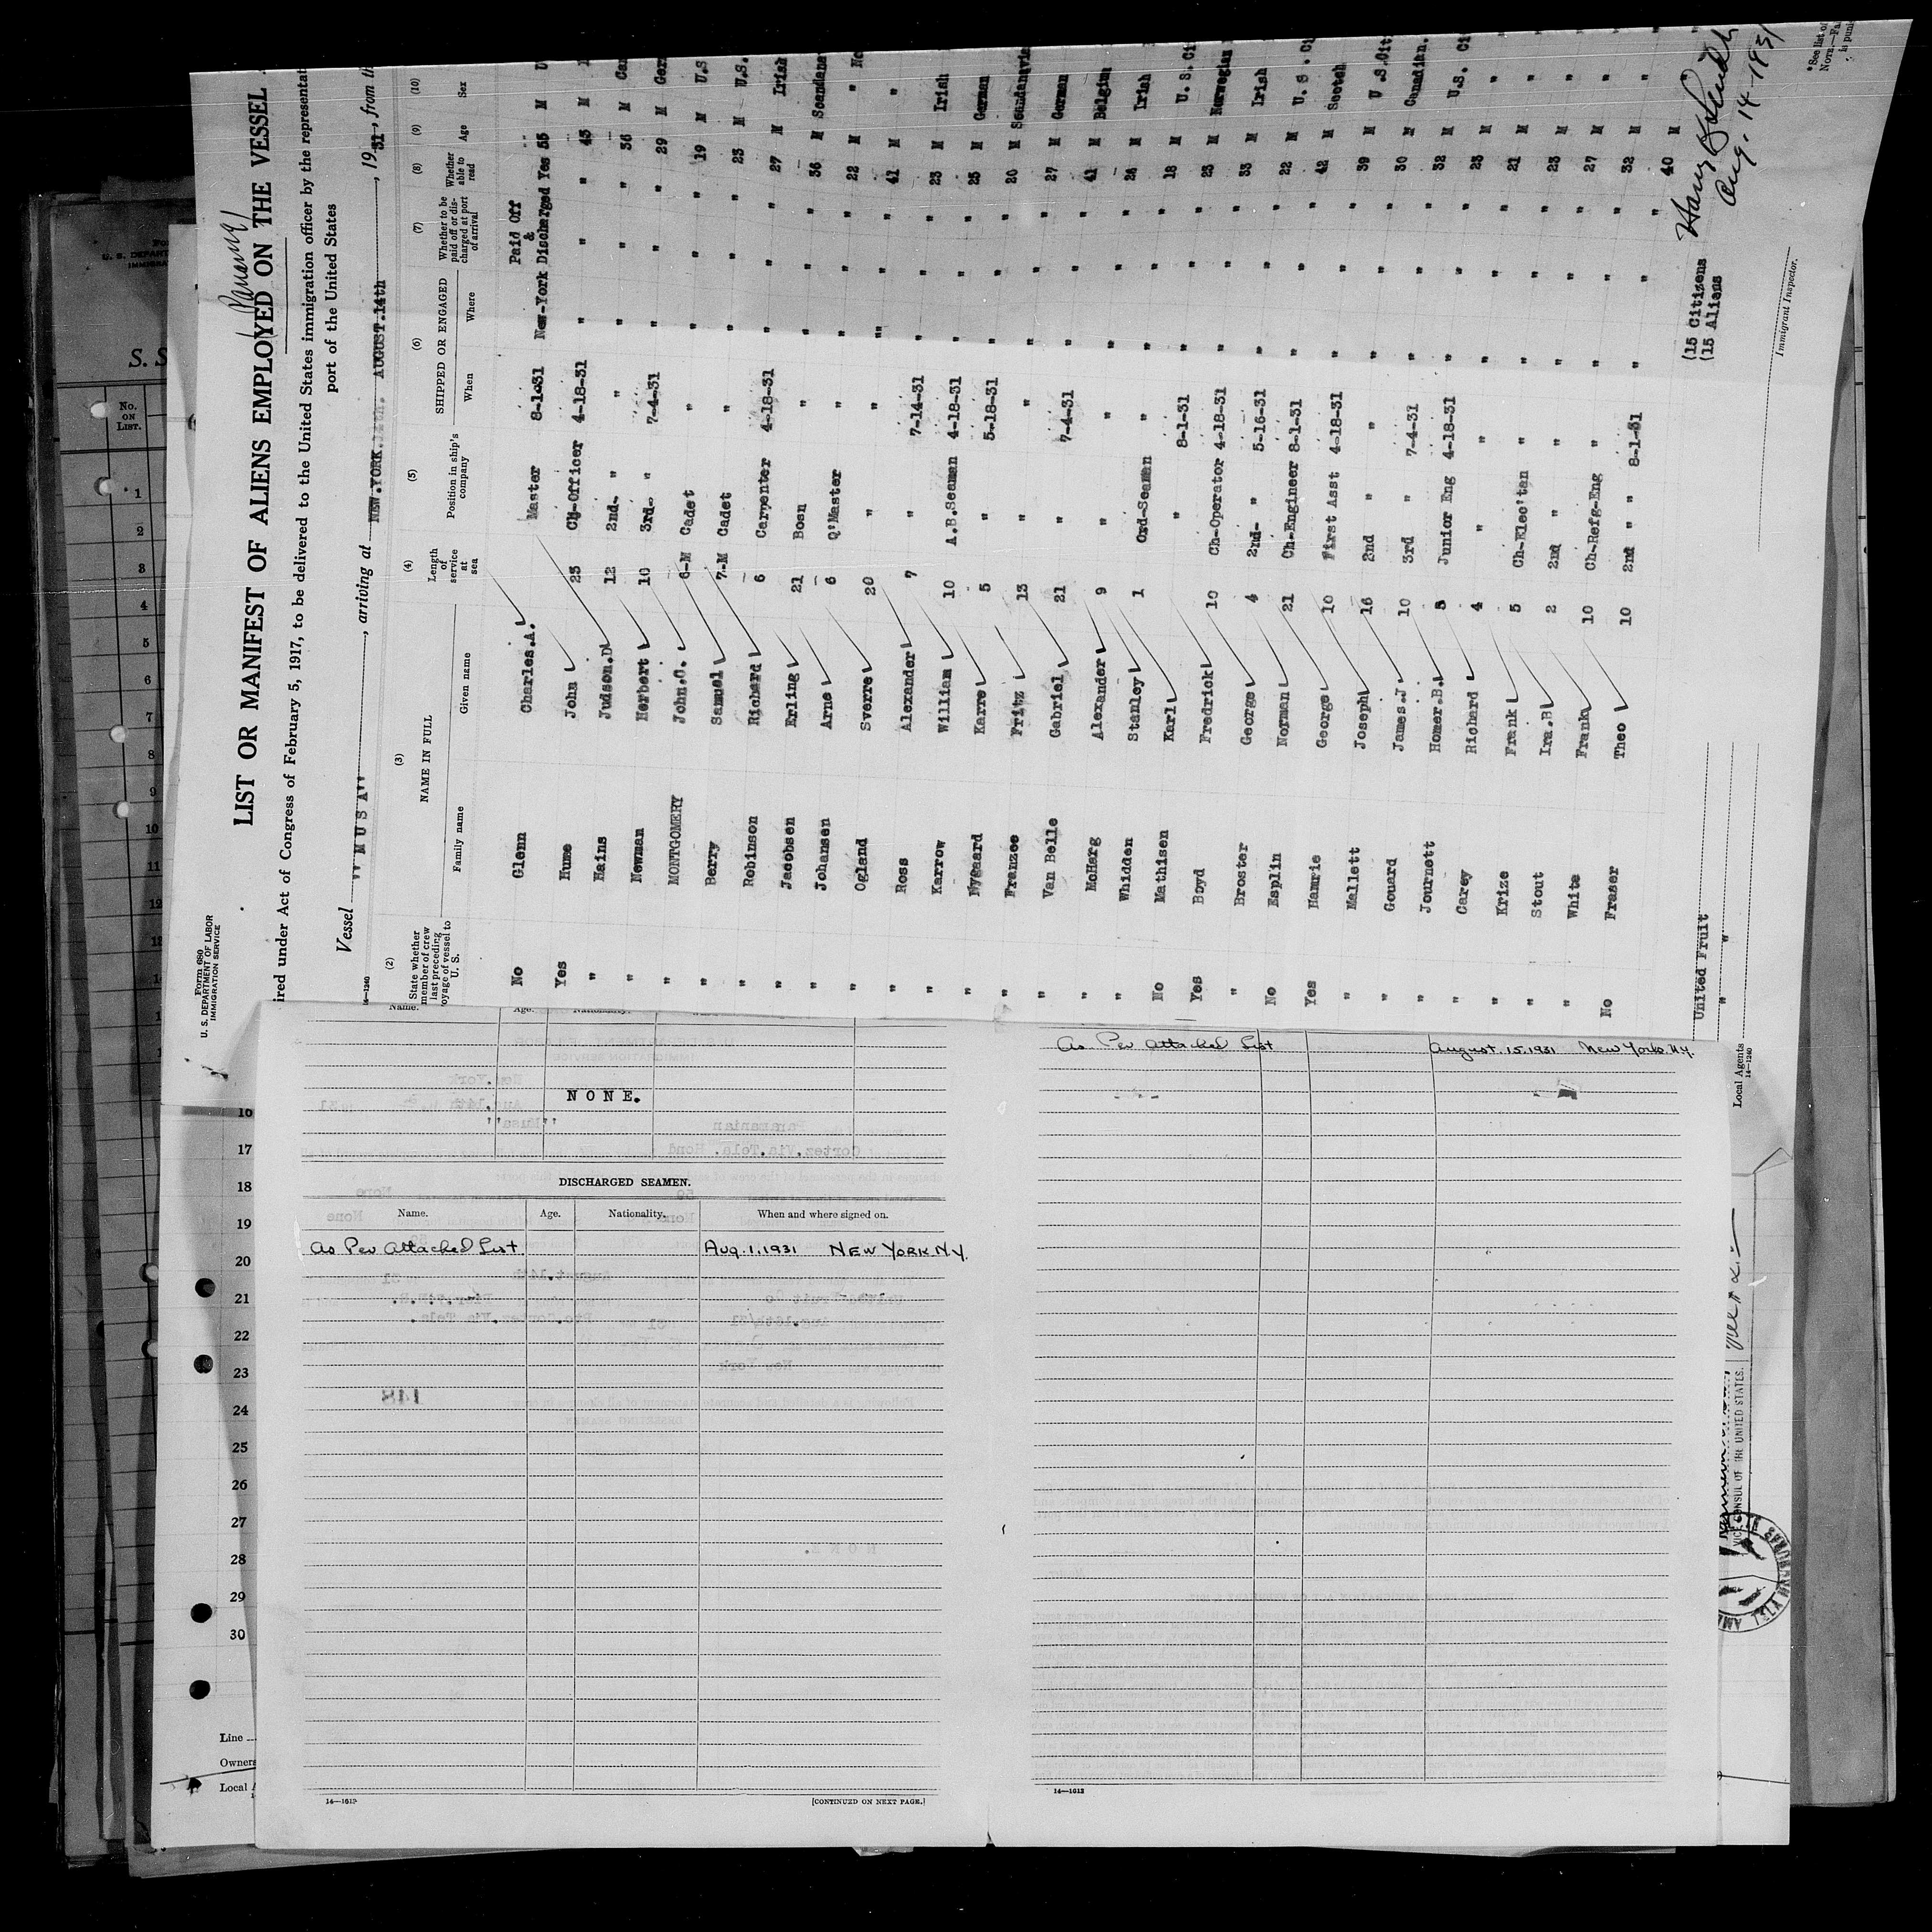 Form 680
U. S. DEPARTMENT OF LABOR
IMMIGRATION SERVICE
LIST OR MANIFEST OF ALIENS EMPLOYED ON THE VESSEL
ired under Act of Congress of February 5, 1917, to be delivered to the United States immigration officer by the representat
port of the United States
Vessel "M U S A", arriving at NEW.YORK. AUGUST.14th, 1931, from th
14-1240
(2) (3) (4) (5) (6) (7) (8) (9) (10)
State whether member of crew last preceding voyage of vessel to U. S. NAME IN FULL Family name Given name Length of service at sea Position in ship's company SHIPPED OR ENGAGED When Where Whether to be paid off or discharged at port of arrival Whether able to read Age Sex
Paid Off
&
No Glenn Charles.A. Master 8-1-31 New-York Discharged Yes 55 M U
Yes Hume John 23 Ch-Officer 4-18-31 " " " 43 M
" Hains Judson.D 12 2nd- " " " " " 36 M Can
" Newman Herbert 10 3rd- " 7-4-31 " " " 29 M Ger
" MONTGOMERY John.C. 6-M Cadet " " " " 19 M U.S
" Berry Samuel 7-M Cadet " " " " 23 M U.S.
" Robinson Richard 6 Carpenter 4-18-31 " " " 27 M Irish
" Jacobsen Erling 21 Bosn " " " " 36 M Scandana
" Johansen Arne 6 Q'Master " " " " 22 M "
" Ogland Sverre 20 " " " " " 41 M "
" Ross Alexander 7 " 7-14-31 " " " 23 M Irish
" Karrow William 10 A.B.Seaman 4-18-31 " " " 25 M German
" Nygaard Karre 5 " 5-18-31 " " " 20 M Scandanavia
" Franzee Fritz 13 " " " " " 27 M German
" Van Belle Gabriel 21 " 7-4-31 " " " 41 M Belgium
" McHarg Alexander 9 " " " " " 26 M Irish
" Whidden Stanley 1 Ord-Seaman " " " " 18 M U. S. Ci
No Mathisen Karl " 8-1-31 " " " 23 M Norwegian
Yes Boyd Fredrick 10 Ch-Operator 4-18-31 " " " 33 M Irish
" Broster George 4 2nd- " 5-16-31 " " " 22 M U. S. Ci
No Esplin Norman 21 Ch-Engineer 8-1-31 " " " 42 M Scotch
Yes Hamrie George 10 First Asst 4-18-31 " " " 39 M U.S.Cit
" Mallett Joseph 16 2nd " " " " " 30 M Canadian.
" Gouard James.J 10 3rd " 7-4-31 " " " 32 M U.S. Ci
" Journett Homer.B. 5 Junior Eng 4-18-31 " " " 23 M "
" Carey Richard 4 " " " " " 21 M "
" Krize Frank 5 Ch-Elec'tan " " " " 23 M "
" Stout Ira.B 2 2nd " " " " " 27 M "
" White Frank 10 Ch-Refg-Eng " " " " 32 M "
No Fraser Theo 10 2nd " " 8-1-31 " " " 40 M
(15 Citizens
(15 Aliens
Aug. 14-1931
Immigrant Inspector.
United Fruit
Local Agents
14-1240
*See list of
S. S
No. ON LIST.
1
2
3
4
5
6
7
8
9
10
11
12
13
16
17
18
19
20
21
22
23
24
25
26
27
28
29
30
Line
Owners
Local A
Name. Age. Nationality.
NONE.
DISCHARGED SEAMEN.
Name. Age. Nationality. When and where signed on.
As Per Attached List Aug. 1, 1931 NEW YORK N.Y.
14-1613
[CONTINUED ON NEXT PAGE.]
As Per Attached List August. 15, 1931 New York. N.Y.
14-1613
VICE CONSUL OF THE UNITED STATES.